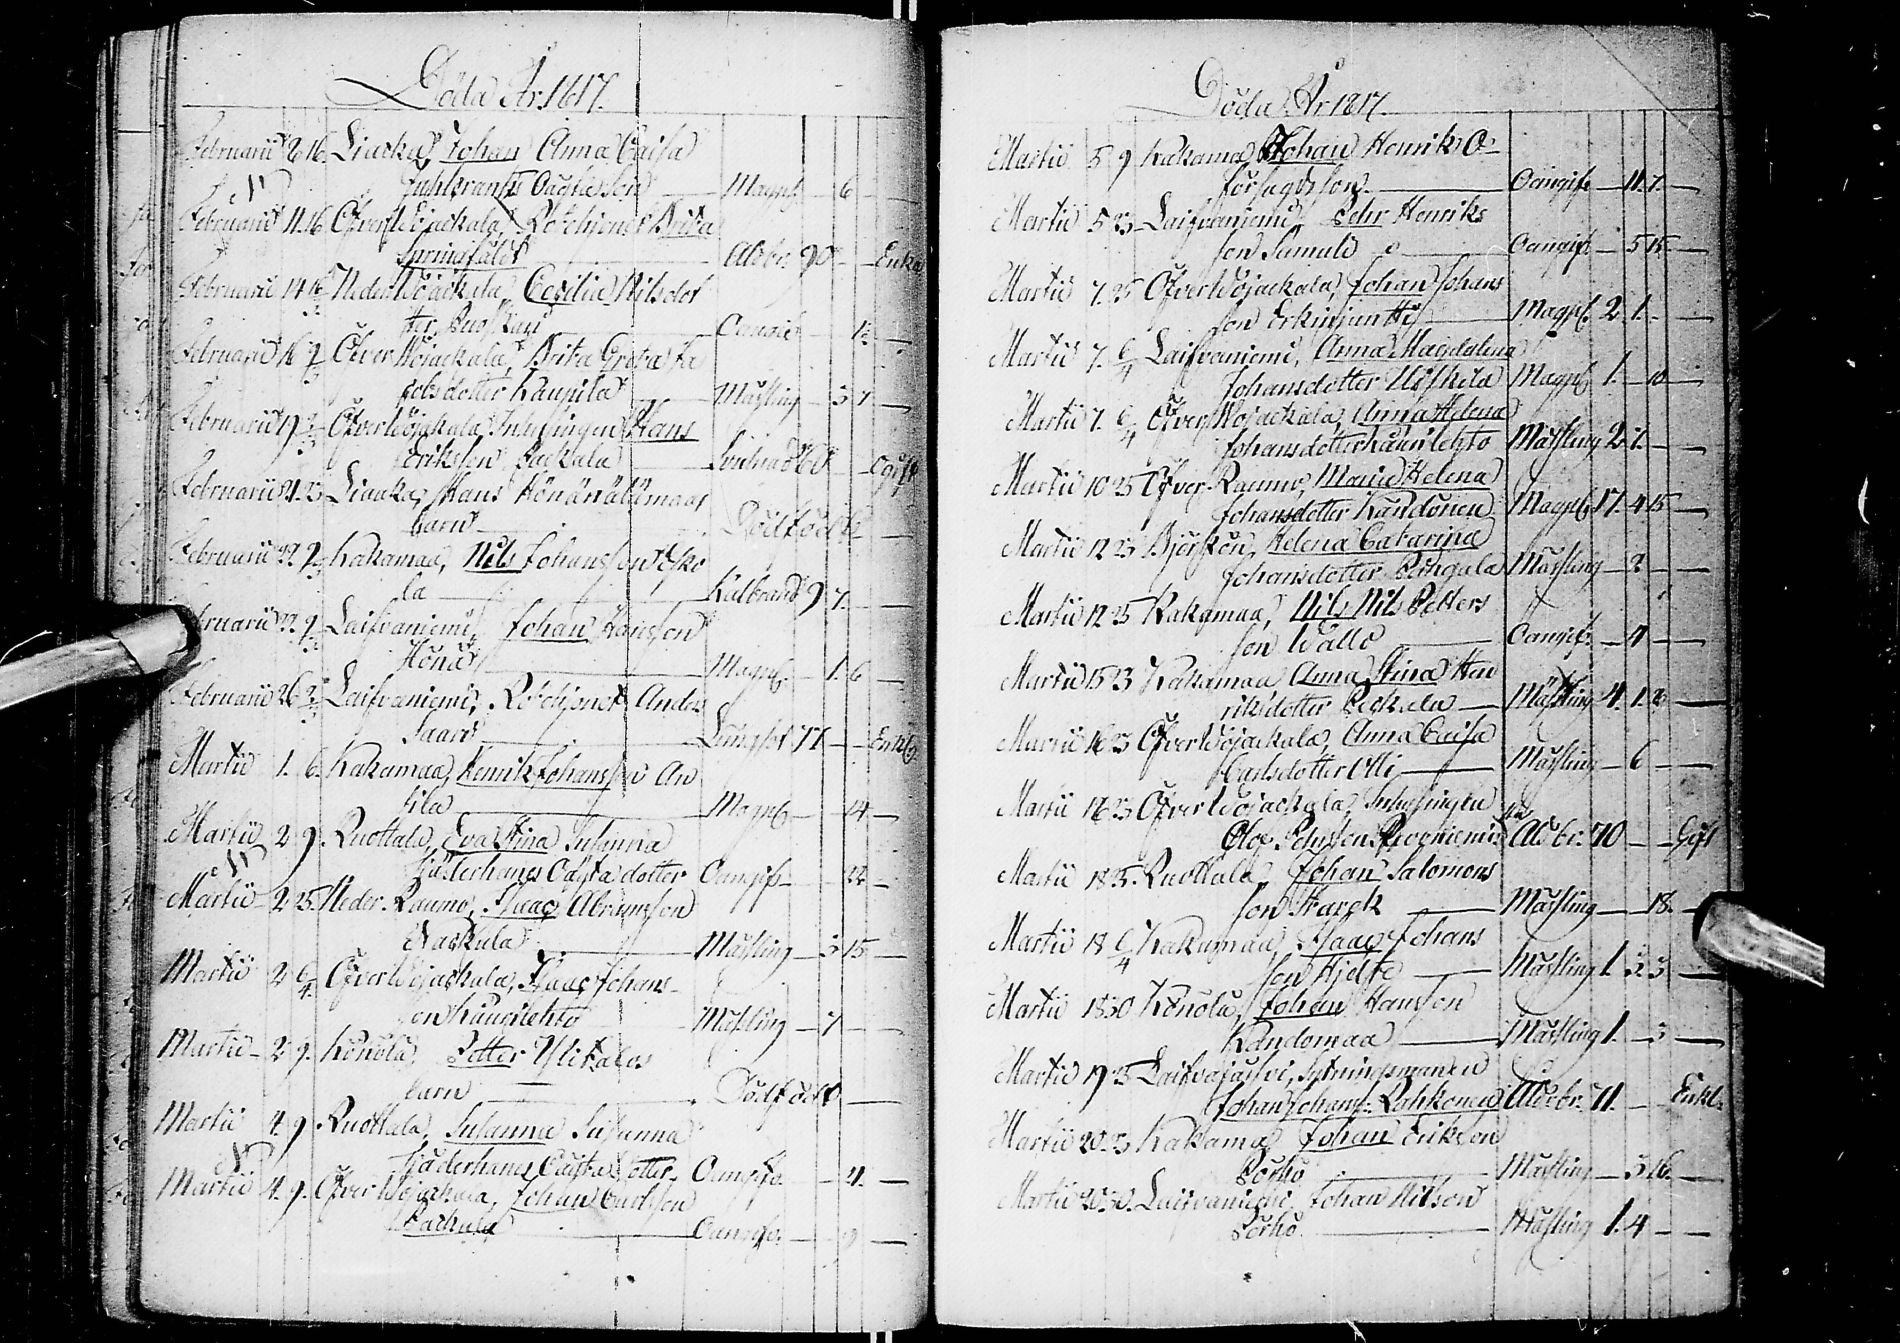 Döda År 1817.
Februarii 2 16 Liacka, Johan Anna Caisa
Juhlsrants Oägta son Magpl. 6
Februarii 11 16 Öfver Wojackala, Rotehjonet Brita
Springfäldt Åldbr. 90 Enka
Februarii 14 16 Neder Wojackala Cecilia Nilsdot
ter Ruoskari Oangif
Februarii 16 Öfver Wojackala, Brita Greta Ja
cobsdotter Kaupila Mässling 3 7
Februarii 19 Öfver Wojackala Inhysingen Hans
Eriksson Packala 60 Ogift
Februarii 21 23 Liacka, Hans
barn Dödfödt
Februarii 22 Kakamaa, Nils Johansson Esko
la Kallbrand 9 7
Februarii 22 Laifvaniemi, Johan Hansson
Höna Magpl. 1 6
Februarii 26 Laifvaniemi, Rotehjonet Anders
Saari Lungsot 77 Enkl.
Martii 1. 6. Kakamaa, Henrik Johansson An
tila Magpl. 14
Martii 2 9. Ruottala, Eva Stina Susanna
Fjäderhanes Oägta dotter Oangif 22
Martii 2 23 Neder Raumo, Isaac Abramsson
Mässling 3 15
Martii 2 6/4 Öfver Wojackala, Isaac Johans
son Kaurilehto Mässling 7
Martii 2 9. Könölä, Petter Ylitalos
barn Dödfödt
Martii 4. 9. Ruottala, Susanna Susanna
Fjäderhanes Oägta dotter Oangif. 4.
Martii 4. 9. Öfver Wojackala, Johan Carlsson
Packala Oangif. 9
Döda År 1817.
Martii 5 9 Kakama Johan Henrik O
försagds son Oangif. 11. 7.
Martii 5 23 Laifvaniemi Pehr Henriks
son Samuli Oangif. 5 15
Martii 7. 25 Öfver Wojackala, Johan Johans
son Erkinjuntti Magpl. 2 1.
Martii 7. 6/4 Laifvaniemi, Anna Magdalena
Johansdotter Magpl. 1. 10
Martii 7. 6/4 Öfver Wojackala, Anna Helena
Johansdotter Kaurilehto Mässling 2 7.
Martii 10 25 Öfver Raumo, Maria Helena
Johansdotter Kandonen Magpl. 17. 4 15
Martii 12 23 Björkön, Helena Catarina
Johansdotter Mässling 2
Martii 12 25 Kakamaa, Nils Nils Petters
son Wallo Oangif. 4
Martii 15 23 Kakamaa Anna Stina Hen
riksdotter Peckala Mässling 4. 1. 2
Martii 16 23 Öfver Wojackala, Anna Caisa
Carlsdotter Olli Mässling 6
Martii 16 23 Öfver Wojackala, Inhysingen
Olof Pehrsson Åldbr. 70 Gift
Martii 18 25. Ruottala Johan Salomons
son Starck Mässling 18.
Martii 18 6/4 Kakamaa, Isaac Johans
son Hjelte Mässling 1 3 3
Martii 18 30 Könölä, Johan Hansson
Kandomaa Mässling 1. 3
Martii 19 25 Laifvajärfvi, sytningsmannen
Johan Johans. Rahkonen Åldbr. 71. Enkl.
Martii 20 23 Kakama Johan Eriksson
Pörhö Mässling 3 16.
Martii 20 30. Laifvaniemi Johan Nilsson
Pörhö Mässling 1. 4